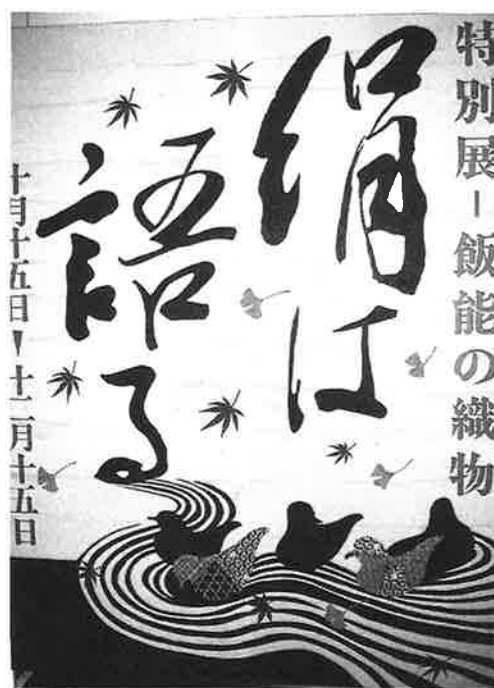 特別展－飯能の織物
絹は
語る
十月十五日－十二月十五日